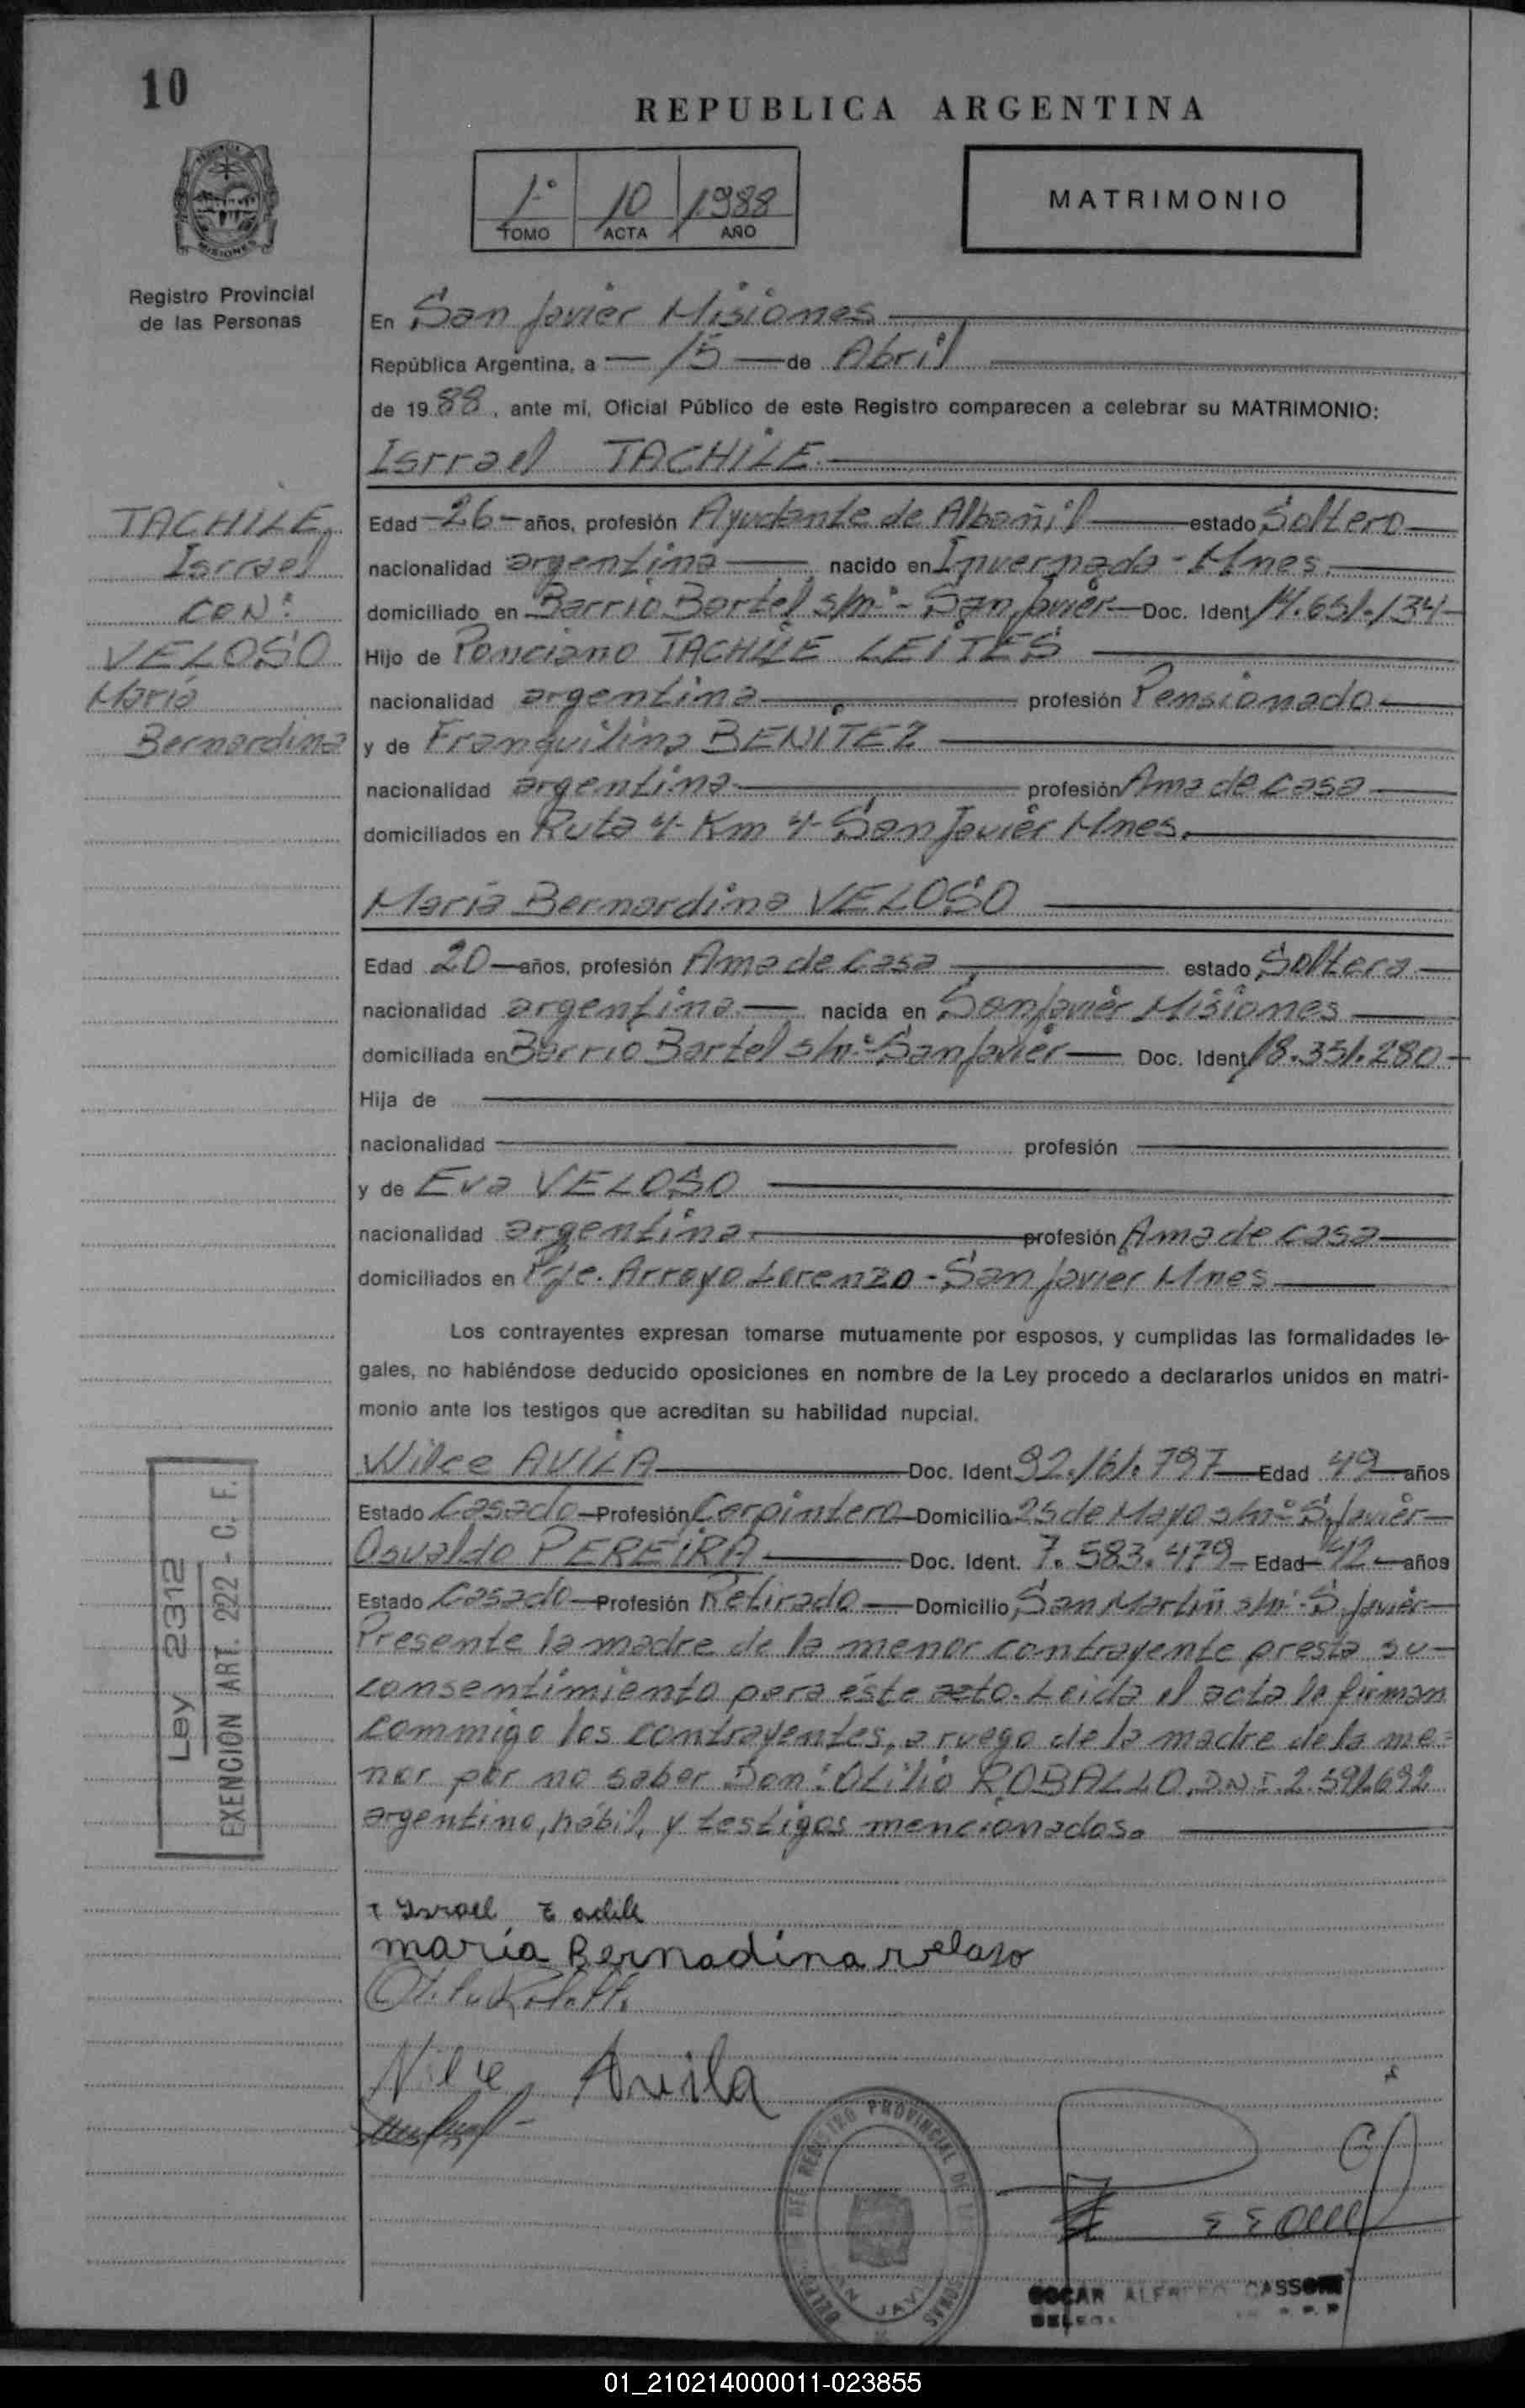 10
REPUBLICA ARGENTINA
1º 10 1988
TOMO ACTA AÑO
MATRIMONIO
MISIONES
Registro Provincial
de las Personas
En San Javier Misiones
República Argentina, a 15 de Abril
de 1988, ante mí, Oficial Público de este Registro comparecen a celebrar su MATRIMONIO:
Isrrael TACHILE
TACHILE,
Isrrael
CON:
VELOSO
María
Bernardina
Edad 26 años, profesión Ayudante de Albañil estado Soltero
nacionalidad argentina nacido en Invernada - Mnes.
domiciliado en Barrio Bartel s/nº - San Javier Doc. Ident 14.651.134
Hijo de Ponciano TACHILE LEITES
nacionalidad argentina profesión Pensionado
y de Franquilina BENITEZ
nacionalidad argentina profesión Ama de casa
domiciliados en Ruta 4 - Km 4 - San Javier Mnes.
María Bernardina VELOSO
Edad 20 años, profesión Ama de casa estado Soltera
nacionalidad argentina nacida en San Javier Misiones
domiciliada en Barrio Bartel s/nº San Javier Doc. Ident 18.351.280
Hija de
nacionalidad profesión
y de Eva VELOSO
nacionalidad argentina profesión Ama de casa
domiciliados en Pje. Arroyo Lorenzo - San Javier Mnes
Los contrayentes expresan tomarse mutuamente por esposos, y cumplidas las formalidades le-
gales, no habiéndose deducido oposiciones en nombre de la Ley procedo a declararlos unidos en matri-
monio ante los testigos que acreditan su habilidad nupcial.
Wilce AVILA Doc. Ident 92.161.797 Edad 49 años
Estado Casado Profesión Carpintero Domicilio 25 de Mayo s/nº S. Javier
Osvaldo PEREIRA Doc. Ident. 7.583.479 Edad 42 años
Estado Casado Profesión Retirado Domicilio San Martín s/nº - S. Javier
Presente la madre de la menor contrayente presta su
consentimiento para éste acto. Leida el acta la firman
commigo los contrayentes, a ruego de la madre de la me=
nor por no saber Don: Otilio ROBALLO, D.N.I. 2.591.692
argentino, hábil, y testigos mencionados.
Ley 2312
EXENCION ART. 222 - C. F.
Isrrael
maría Bernadina velaso
Avila
REGISTRO PROVINCIAL DE
ALFREDO CASSONI
01_210214000011-023855